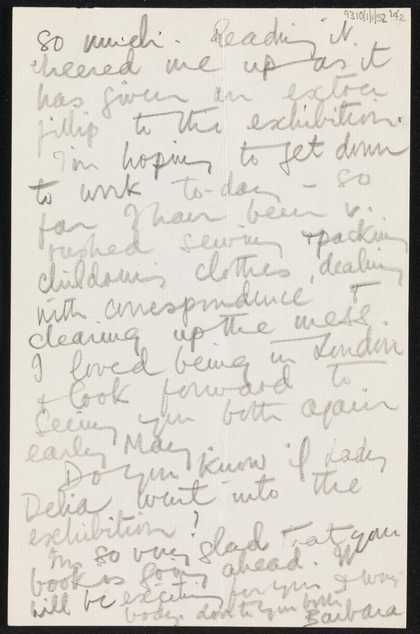 9310/1/1/52 2/2
so much. Reading it
cheered me up as it
has given an extra
fillip to the exhibition.
I'm hoping to get down
to work to-day – so
far I have been v.
rushed sewing & packing
childrens clothes, dealing
with correspondence &
clearing up the mess.
I loved being in London
& look forward to
seeing you both again
early May.
Do you know if Lady
Delia went into the
exhibition?
I'm so very glad that your
book is going ahead. It
will be exciting for you &
body. love to you both
Barbara